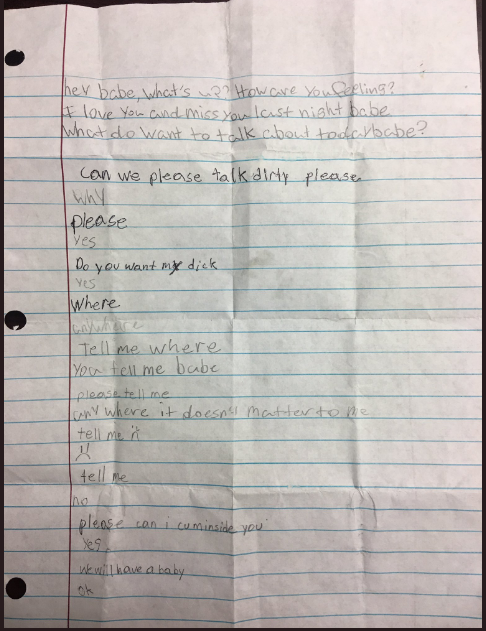 hey babe, what's up?? How are you feeling?
I love you and miss you last night babe
What do want to talk about today babe?
Can we please talk dirty please
why
please
yes
Do you want my dick
yes
Where
anywhere
Tell me where
You tell me babe
please tell me
any where it doesn't matter to me
tell me it
tell me
no
please can i cum inside you
yes.
we will have a baby
ok